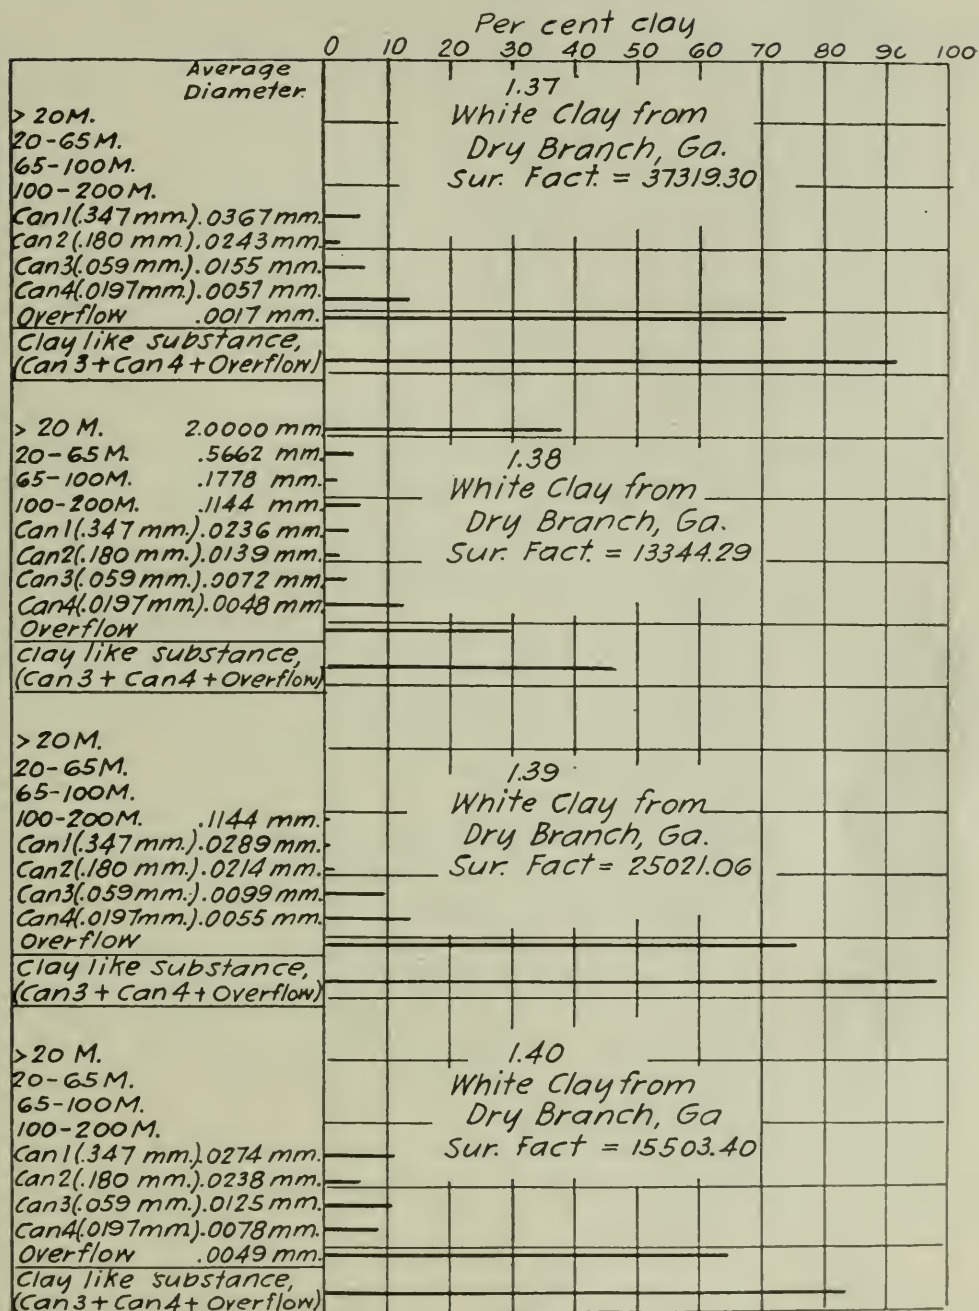 Per cent clay
0 10 20 30 40 50 60 70 80 90 100
Average
Diameter
1.37
White Clay from
Dry Branch, Ga.
Sur. Fact. = 37319.30
> 20M.
20-65M.
65-100M.
100-200M.
Can1(.347mm.).0367mm.
Can2(.180 mm.).0243mm.
Can3(.059mm.).0155 mm.
Can4(.0197mm.).0057 mm.
Overflow .0017 mm.
Clay like substance,
(Can 3 + Can 4 + Overflow)
1.38
White Clay from
Dry Branch, Ga.
Sur. Fact = 13344.29
> 20 M. 2.0000 mm.
20-65M. .5662 mm.
65-100M. .1778 mm.
100-200M. .1144 mm.
Can1(.347mm.).0236mm.
Can2(.180 mm.).0139mm.
Can3(.059mm.).0072 mm.
Can4(.0197mm.).0048 mm.
Overflow
Clay like substance,
(Can 3 + Can 4 + Overflow)
1.39
White Clay from
Dry Branch, Ga.
Sur. Fact = 25021.06
> 20M.
20-65M.
65-100M.
100-200M. .1144 mm.
Can1(.347mm.).0289mm.
Can2(.180 mm.).0214mm.
Can3(.059mm.).0099mm.
Can4(.0197mm.).0055 mm.
Overflow
Clay like substance,
(Can 3 + Can 4 + Overflow)
1.40
White Clay from
Dry Branch, Ga
Sur. Fact = 15503.40
> 20 M.
20-65M.
65-100M.
100-200M.
Can1(.347 mm.).0274mm.
Can2(.180 mm.).0238mm.
Can3(.059 mm.).0125mm.
Can4(.0197mm.).0078mm.
Overflow .0049 mm.
Clay like substance,
(Can 3 + Can 4 + Overflow)